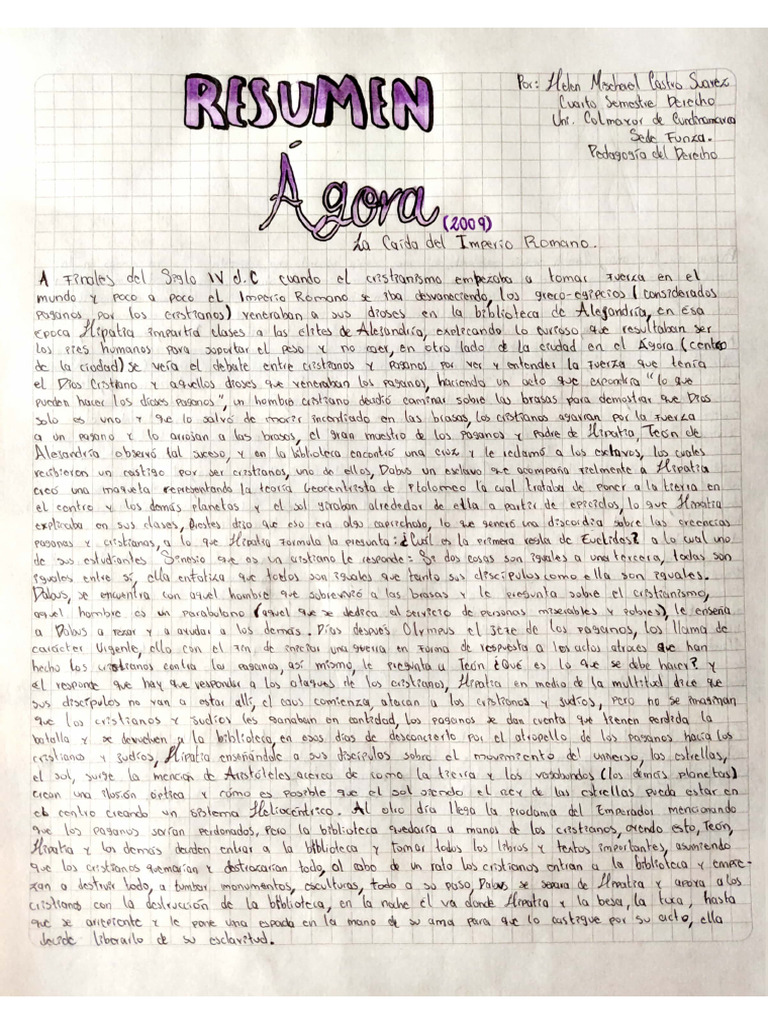 RESUMEN
Por: Helen Mischael Castro Suarez
Cuarto Semestre Derecho
Uni. Colmayor de Cundinamarca
Sede Funza.
Pedagogía del Derecho
Ágora (2009)
La Caída del Imperio Romano.
A Finales del Siglo IV d.C cuando el cristianismo empezaba a tomar fuerza en el
mundo y poco a poco el Imperio Romano se iba desvaneciendo, los greco-egipcios (considerados
paganos por los cristianos) veneraban a sus dioses en la biblioteca de Alejandría, en esa
época Hipatia impartía clases a las elites de Alejandría, explicando lo curioso que resultaban ser
los pies humanos para soportar el peso y no caer, en otro lado de la ciudad en el Ágora (centro
de la ciudad) se vería el debate entre cristianos y paganos por ver y entender la fuerza que tenía
el Dios Cristiano y aquellos dioses que veneraban los paganos, haciendo un acto que expondría "lo que
pueden hacer los dioses paganos", un hombre cristiano decidió caminar sobre las brasas para demostrar que Dios
solo es uno y que lo salvó de morir incendiado en las brasas, los cristianos agarran por la fuerza
a un pagano y lo arrojan a las brasas, el gran maestro de los paganos y padre de Hipatia, Teón de
Alejandría observó tal suceso, y en la biblioteca encontró una cruz y le reclamó a los esclavos, los cuales
recibieron un castigo por ser cristianos, uno de ellos, Dabus un esclavo que acompaña fielmente a Hipatia
creó una maqueta representando la teoría Geocentrista de Ptolomeo la cual trataba de poner a la tierra en
el centro y los demás planetas y el sol giraban alrededor de ella a partir de epiciclos, lo que Hipatia
explicaba en sus clases, Orestes dijo que eso era algo caprichoso, lo que generó una discordia sobre las creencias
paganas y cristianas, a lo que Hipatia formula la pregunta: ¿Cuál es la primera regla de Euclides? a la cual uno
de sus estudiantes Sinesio que es un cristiano le responde: Si dos cosas son iguales a una tercera, todas son
iguales entre sí, ella enfatiza que todos son iguales que tanto sus discípulos como ella son iguales.
Dabus, se encuentra con aquel hombre que sobrevivió a las brasas y le pregunta sobre el cristianismo,
aquel hombre es un parabolano (aquel que se dedica al servicio de personas miserables y pobres), le enseña
a Dabus a rezar y a ayudar a los demás. Días después Olympus el Jefe de los paganos, los llama de
carácter Urgente, ello con el fin de iniciar una guerra en forma de respuesta a los actos atroces que han
hecho los cristianos contra los paganos, así mismo, le pregunta a Teón ¿Qué es lo que se debe hacer? y
el responde que hay que responder a los ataques de los cristianos, Hipatia en medio de la multitud dice que
sus discípulos no van a estar allí, el caos comienza, atacan a los cristianos y judíos, pero no se imaginan
que los cristianos y judíos les ganaban en cantidad, los paganos se dan cuenta que tienen perdida la
batalla y se devuelven a la biblioteca, en esos días de desconcierto por el atropello de los paganos hacia los
cristianos y judíos, Hipatia enseñándole a sus discípulos sobre el movimiento del universo, las estrellas,
el sol, surge la mención de Aristóteles acerca de como la tierra y los vagabundos (los demás planetas)
crean una ilusión óptica y cómo es posible que el sol siendo el rey de las estrellas pueda estar en
el centro creando un sistema Heliocéntrico. Al otro día llega la proclama del Emperador mencionando
que los paganos serían perdonados, pero la biblioteca quedaría a manos de los cristianos, oyendo esto, Teón,
Hipatia y los demás deciden entrar a la biblioteca y tomar todos los libros y textos importantes, asumiendo
que los cristianos quemarían y destrozarían todo, al cabo de un rato los cristianos entran a la biblioteca y empie-
zan a destruir todo, a tumbar monumentos, esculturas, todo a su paso, Dabus se separa de Hipatia y apoya a los
cristianos con la destrucción de la biblioteca, en la noche el va donde Hipatia y la besa, la toca, hasta
que se arrepiente y le pone una espada en la mano de su ama para que lo castigue por su acto, ella
decide liberarlo de su esclavitud.